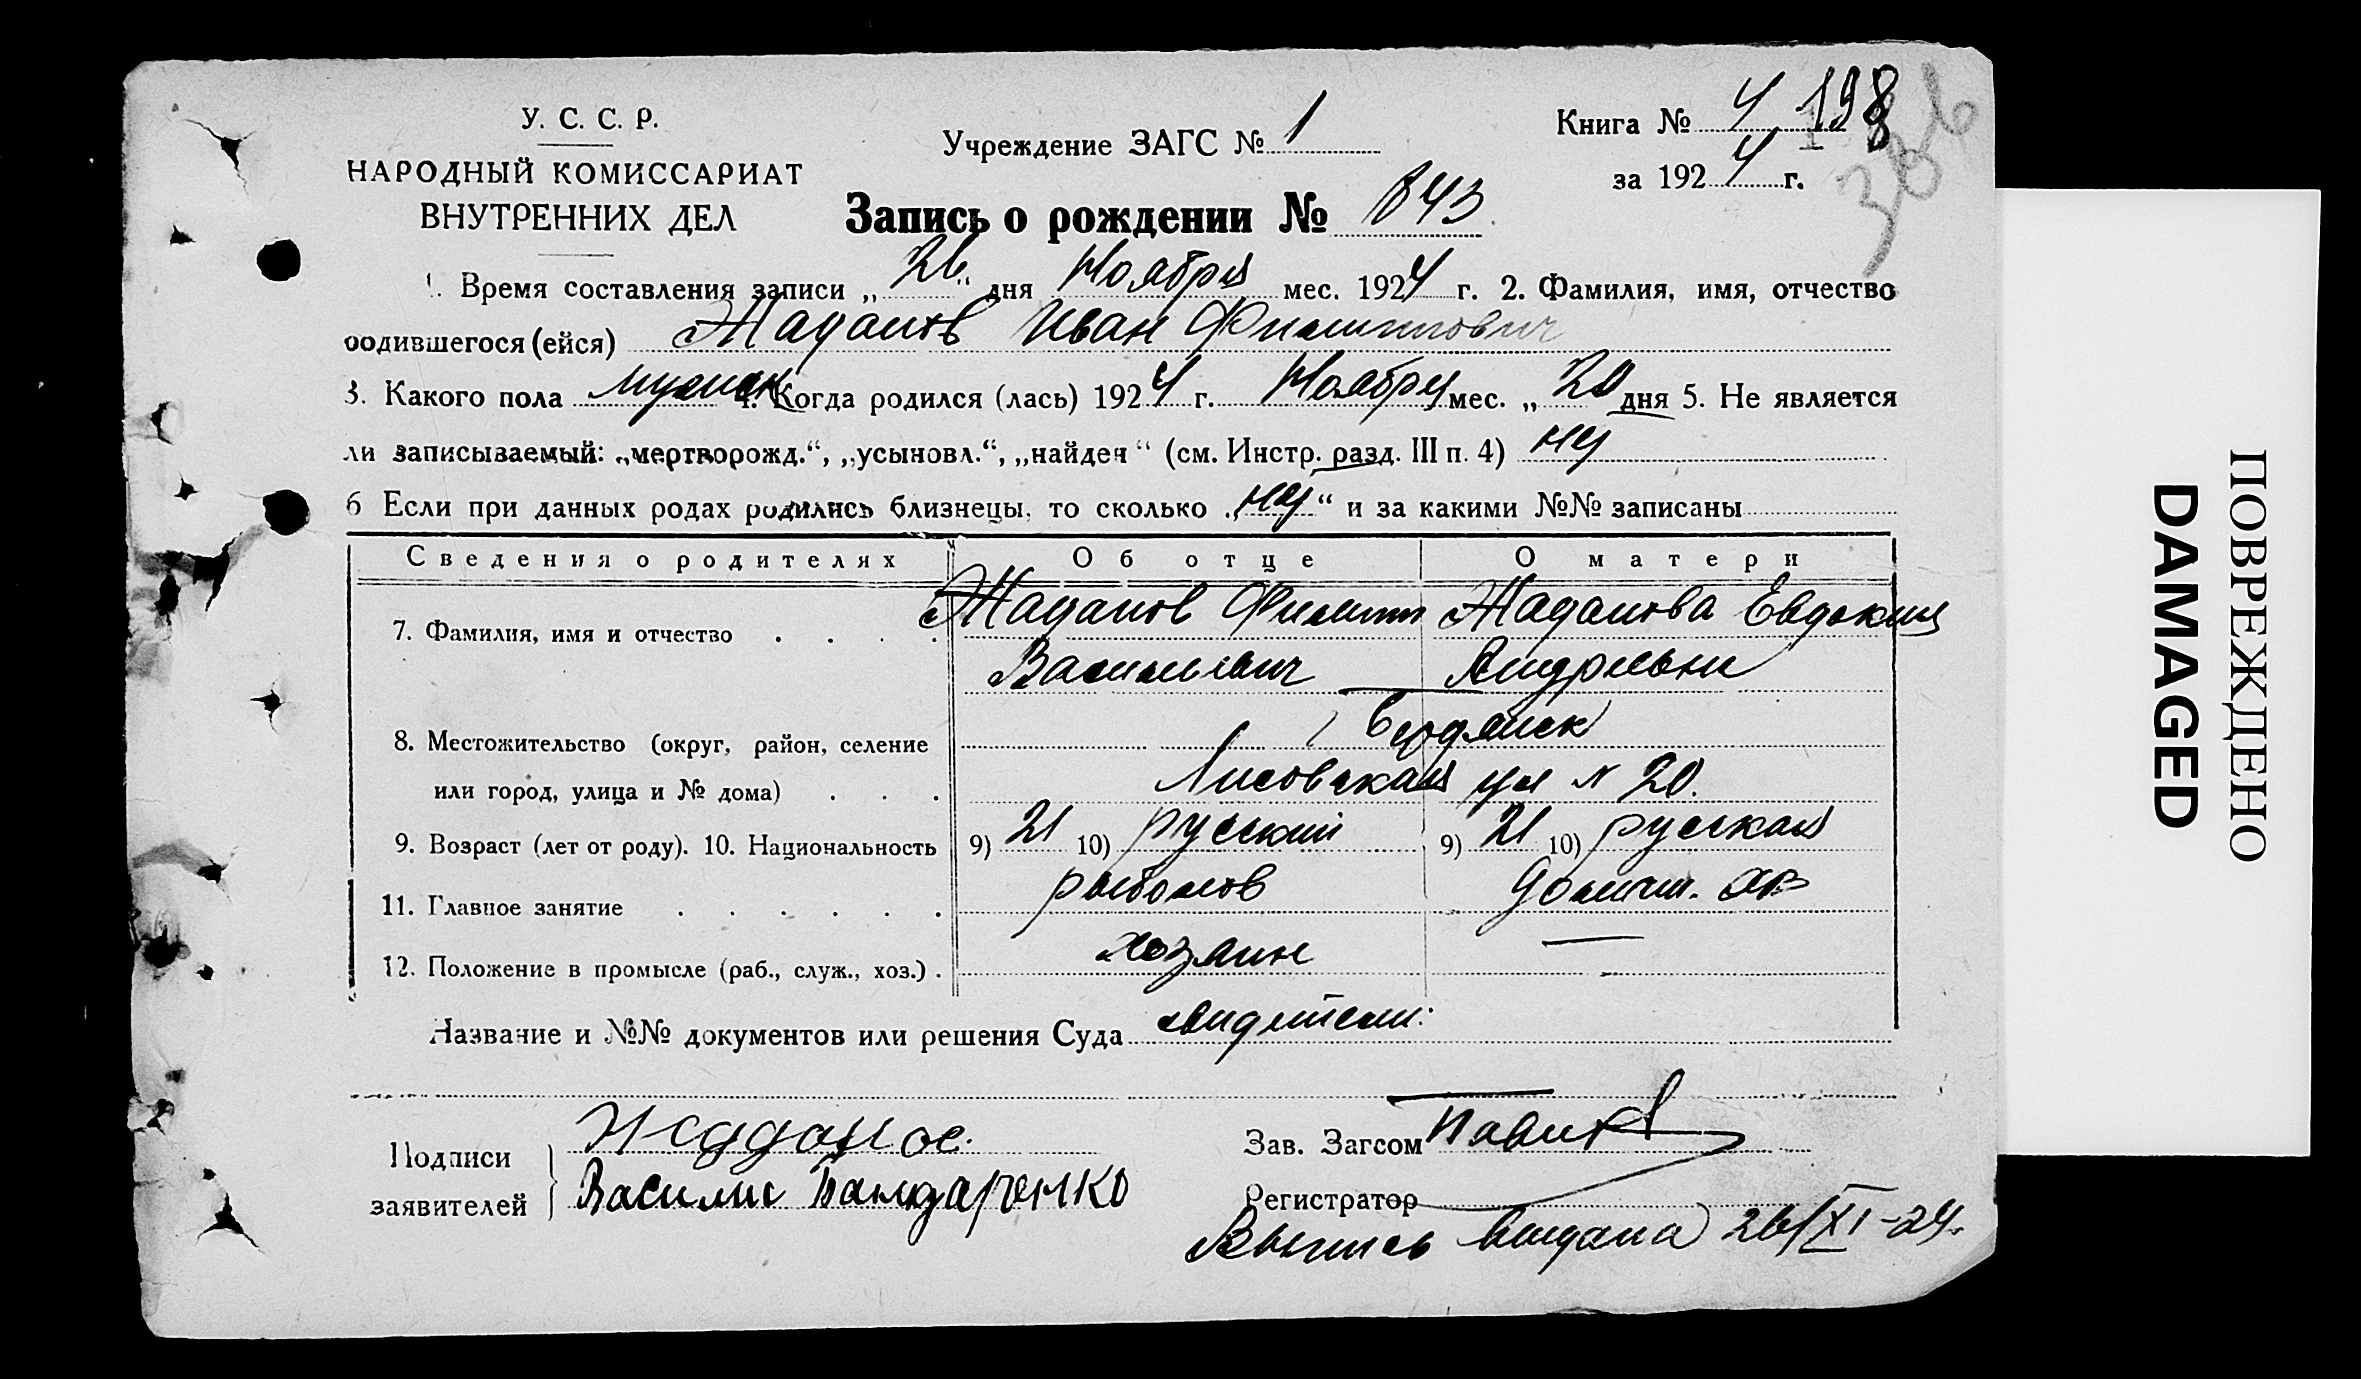 У. С. С. Р.
НАРОДНЫЙ КОМИССАРИАТ
ВНУТРЕННИХ ДЕЛ
Учреждение ЗАГС № 1
Книга № 4 198
за 1924 г.
386
Запись о рождении № 843
1. Время составления записи „26“ дня Ноября мес. 1924 г. 2. Фамилия, имя, отчество
родившегося (ейся) Жаданов Иван Филиппович
3. Какого пола мужск 4. Когда родился (лась) 1924 г. Ноября мес. „20 дня 5. Не является
ли записываемый: „мертворожд.“, „усыновл.“, „найден“ (см. Инстр. разд. III п. 4) нет
6 Если при данных родах родились близнецы, то сколько „нет“ и за какими №№ записаны
Сведения о родителях Об отце О матери
7. Фамилия, имя и отчество . . . . Жаданов Филипп Жаданова Евдокия
Васильевич Андреевна
8. Местожительство (округ, район, селение Бердянск
или город, улица и № дома) . . . Лисовская ул N 20.
9. Возраст (лет от роду). 10. Национальность 9) 21 10) русский 9) 21 10) русская
11. Главное занятие . . . . . . рыболов домашн. хоз
12. Положение в промысле (раб., служ., хоз.) . хозяин —
Название и №№ документов или решения Суда свидетели:
Подписи
заявителей
Жаданов
Василий Бандаренко
Зав. Загсом
Регистратор
Выпись выдана 26/XI-24.
ПОВРЕЖДЕНО
DAMAGED